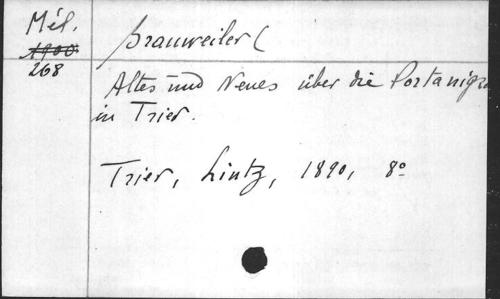 Mél.
268
Brauweiler (
Altes und Neues über die Porta nigra
in Trier.
Trier, Lintz, 1890, 8°